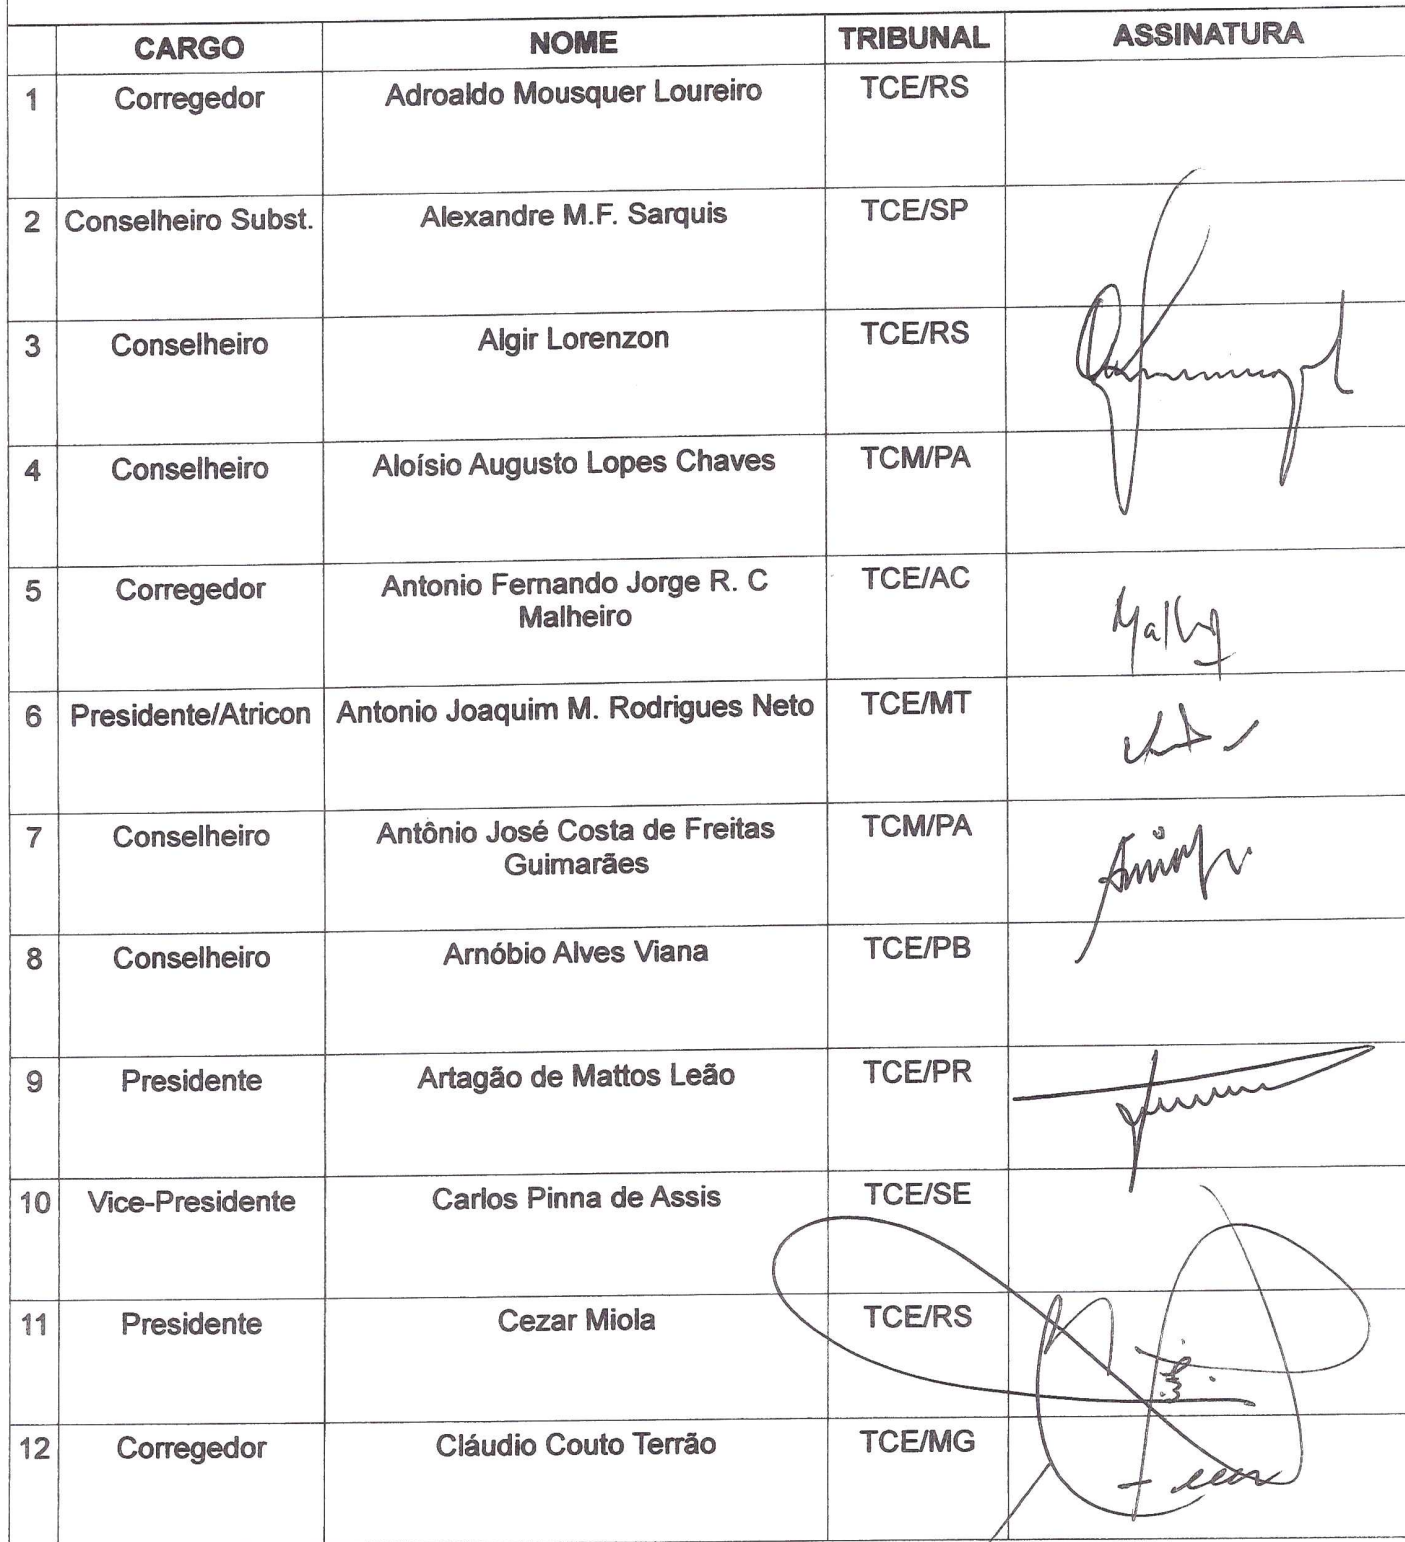 CARGO NOME TRIBUNAL ASSINATURA
1 Corregedor Adroaldo Mousquer Loureiro TCE/RS
2 Conselheiro Subst. Alexandre M.F. Sarquis TCE/SP
3 Conselheiro Algir Lorenzon TCE/RS
4 Conselheiro Aloísio Augusto Lopes Chaves TCM/PA
5 Corregedor Antonio Fernando Jorge R. C TCE/AC
Malheiro
6 Presidente/Atricon Antonio Joaquim M. Rodrigues Neto TCE/MT
7 Conselheiro Antônio José Costa de Freitas TCM/PA
Guimarães
8 Conselheiro Arnóbio Alves Viana TCE/PB
9 Presidente Artagão de Mattos Leão TCE/PR
10 Vice-Presidente Carlos Pinna de Assis TCE/SE
11 Presidente Cezar Miola TCE/RS
12 Corregedor Cláudio Couto Terrão TCE/MG